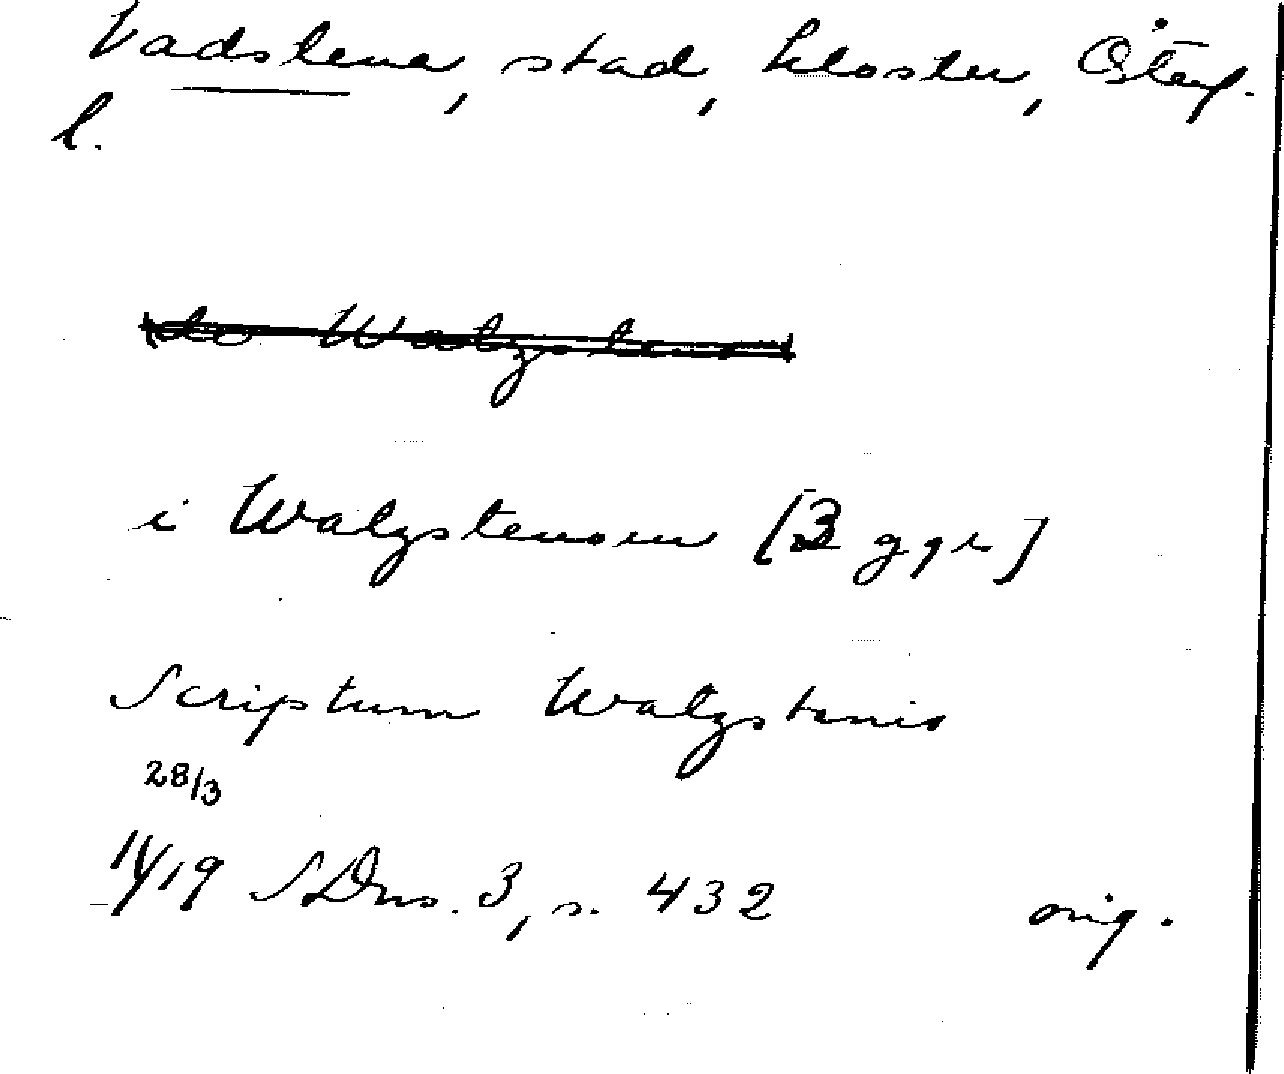 Vadstena, stad, kloster, Östergl.
l.
i Walzstenom [3 ggr]
Scriptum Walzstenis
28/3
1419 SDns. 3, s. 432 orig.